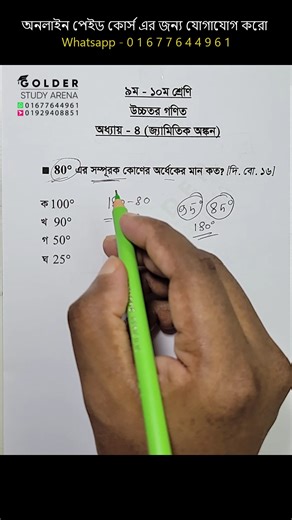 অনলাইন পেইড কোর্স এর জন্য যোগাযোগ করো
Whatsapp - 0 1 6 7 7 6 4 4 9 6 1
GOLDER
STUDY ARENA
01677644961
01929408851
৯ম - ১০ম শ্রেণি
উচ্চতর গণিত
অধ্যায় - ৪ (জ্যামিতিক অঙ্কন)
■ 80° এর সম্পূরক কোণের অর্ধেকের মান কত? [দি. বো. ১৬]
ক 100°
খ 90°
গ 50°
ঘ 25°
180-80
95° 85°
180°